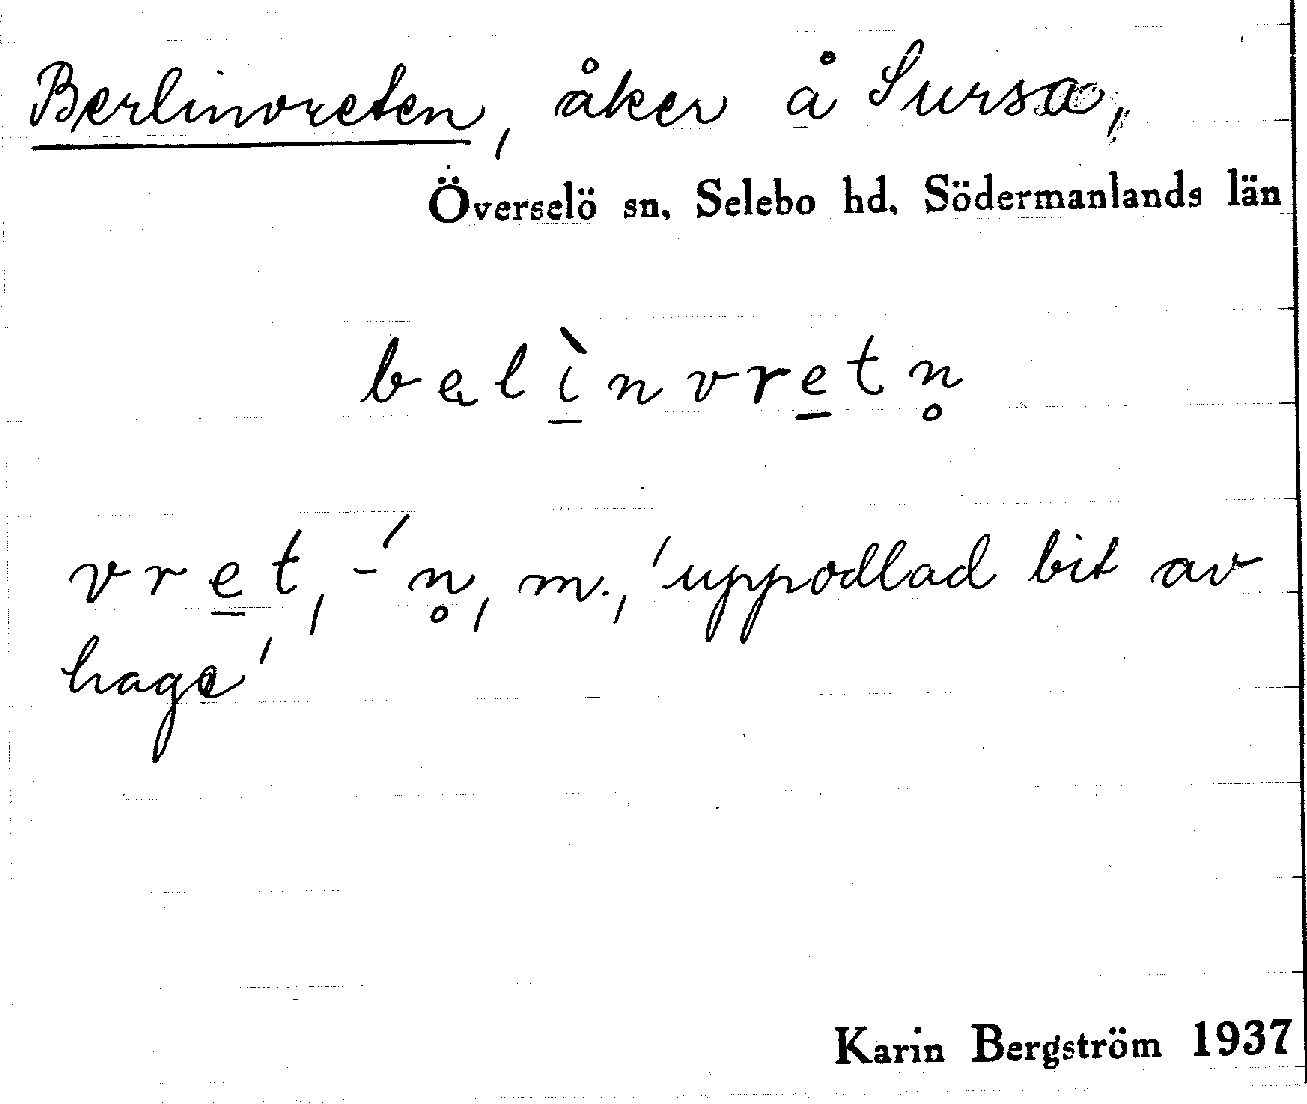 Berlinvreten, åker å Sursa,
Överselö sn. Selebo hd. Södermanlands län
bəlì̱nvre̱tn̥
vre̱t, -´n̥, m., 'uppodlad bit av
hage'
Karin Bergström 1937